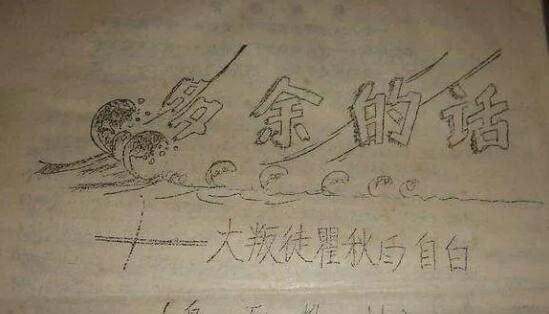 多余的话
——大叛徒瞿秋白自白